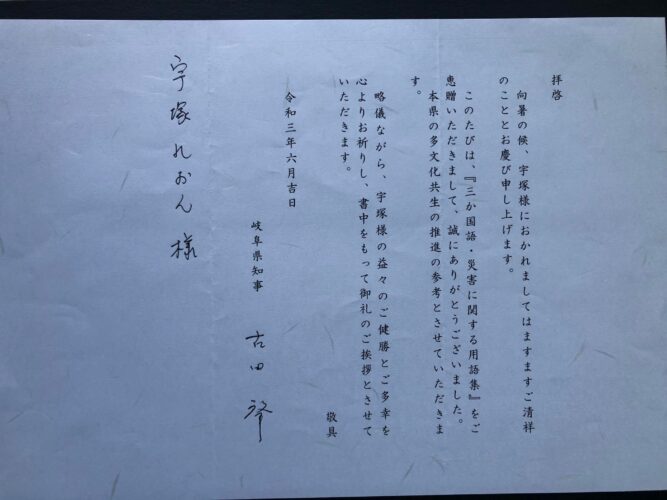 拝啓
向暑の候、宇塚様におかれましてはますますご清祥
のこととお慶び申し上げます。
このたびは、『三か国語・災害に関する用語集』をご
恵贈いただきまして、誠にありがとうございました。
本県の多文化共生の推進の参考とさせていただきま
す。
略儀ながら、宇塚様の益々のご健勝とご多幸を
心よりお祈りし、書中をもって御礼のご挨拶とさせて
いただきます。
敬具
令和三年六月吉日
岐阜県知事 古田肇
宇塚れおん様